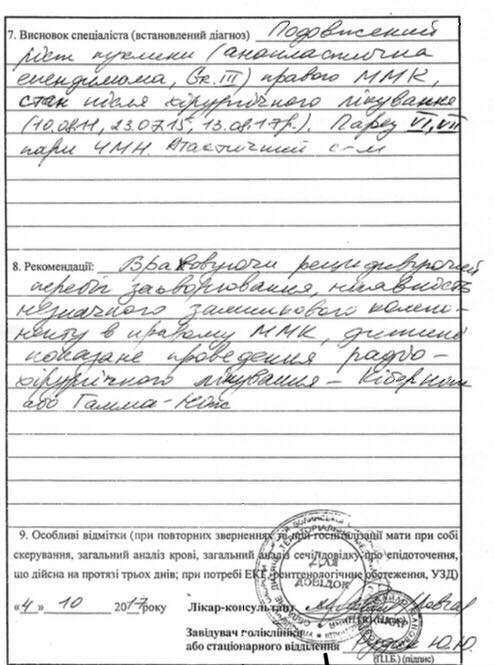 7. Висновок спеціаліста (встановлений діагноз) Подовжений
ріст пухлини (анопластична
епендимома, Gr. III) правого ММК,
стан після хірургічного лікування
(10.08.11, 23.07.15, 13.08.17р.). Парез VI, VII
пари ЧМН. Атактичний с-м
8. Рекомендації: Враховуючи рецидивуючий
перебіг захворювання, наявність
незначного залишкового компо-
ненту в правому ММК, дитині
показане проведення радіо-
хірургічного лікування – Кіберніж
або Гамма-Ніж
9. Особливі відмітки (при повторних зверненнях та при госпіталізації мати при собі
скерування, загальний аналіз крові, загальний аналіз сечі, довідку про епідоточення,
що дійсна на протязі трьох днів; при потребі ЕКГ, рентгенологічне обстеження, УЗД)
«4» 10 2017 року Лікар-консультант
ДЛЯ
ДОВІДОК
Завідувач поліклініки
або стаціонарного відділення Ю.Ю.
(П.І.Б.) (підпис)